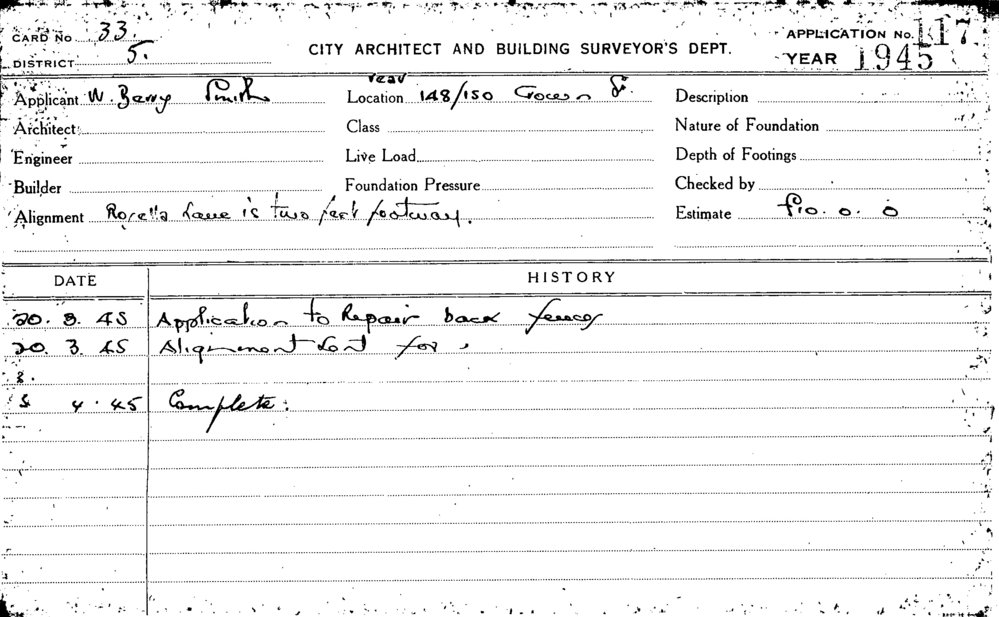 CARD No 33.
DISTRICT 5.
CITY ARCHITECT AND BUILDING SURVEYOR'S DEPT.
APPLICATION No. 117
YEAR 1945
Applicant W. Barry Smith
Location rear 148/150 Gower St.
Description
Architect
Class
Nature of Foundation
Engineer
Live Load
Depth of Footings
Builder
Foundation Pressure
Checked by
Alignment Rosella Lane is two feet footway.
Estimate £10. 0. 0
DATE HISTORY
20. 3. 45 Application to Repair back fences
20. 3. 45 Alignment for
4. 45 Complete.